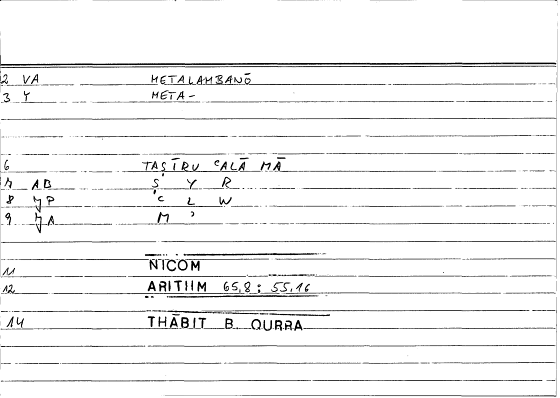 2 VA METALAMBANŌ
3 Y META-
6 TAṢĪRU ʿALĀ MĀ
7 AB Ṣ Y R
8 JP ʿ L W
9 JA M ʾ
11 NICOM
12 ARITHM 65,8 : 55,16
14 THĀBIT B. QURRA